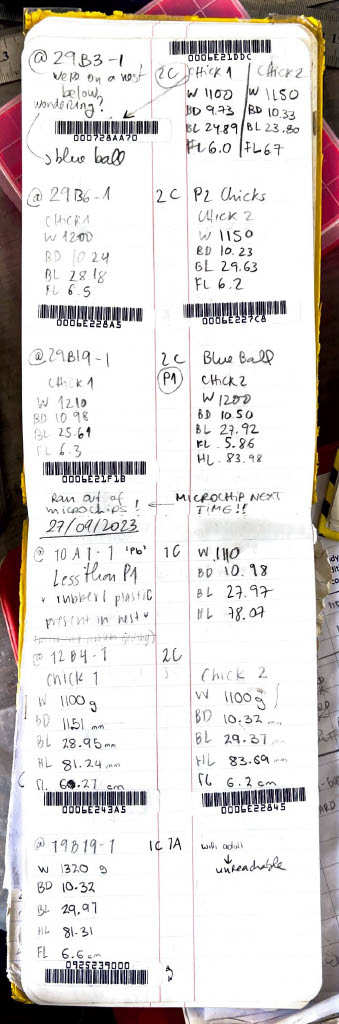 0006E21DDC
@ 29B3-1
were on a nest
below
wondering?
000728AA70
blue ball
2C
Chick 1
W 1100
BD 9.73
BL 24.89
FL 6.0
Chick 2
W 1150
BD 10.33
BL 23.80
FL 67
@ 29B6-1
2C
P2 Chicks
Chick 1
W 1200
BD 10 24
BL 28 18
FL 6.5
0006E228A5
Chick 2
W 1150
BD 10.23
BL 29.63
FL 6.2
0006E227C8
@ 29B19-1
2C
Blue Ball
P1
Chick 1
W 1210
BD 10.98
BL 25.61
FL 6.3
0006E21F1B
Chick 2
W 1200
BD 10.50
BL 27.92
FL 5.86
HL 83.98
Ran out of
microchips!
MICROCHIP NEXT
TIME!!
27/09/2023
@ 10A1-1 'Pb'
1C
Less than P1
* rubber / plastic
present in nest *
W 1110
BD 10.98
BL 27.97
HL 78.07
@ 12B4-1
2C
Chick 1
W 1100 g
BD 11.51 mm
BL 28.95 mm
HL 81.24 mm
FL 6.27 cm
0006E243A5
Chick 2
W 1100 g
BD 10.32 mm
BL 29.37 mm
HL 83.69 mm
FL 6.2 cm
0006E22845
@ 19B19-1
1C 1A
with adult
unreachable
W 1320 g
BD 10.32
BL 29.97
HL 81.31
FL 6.6 cm
0925239000